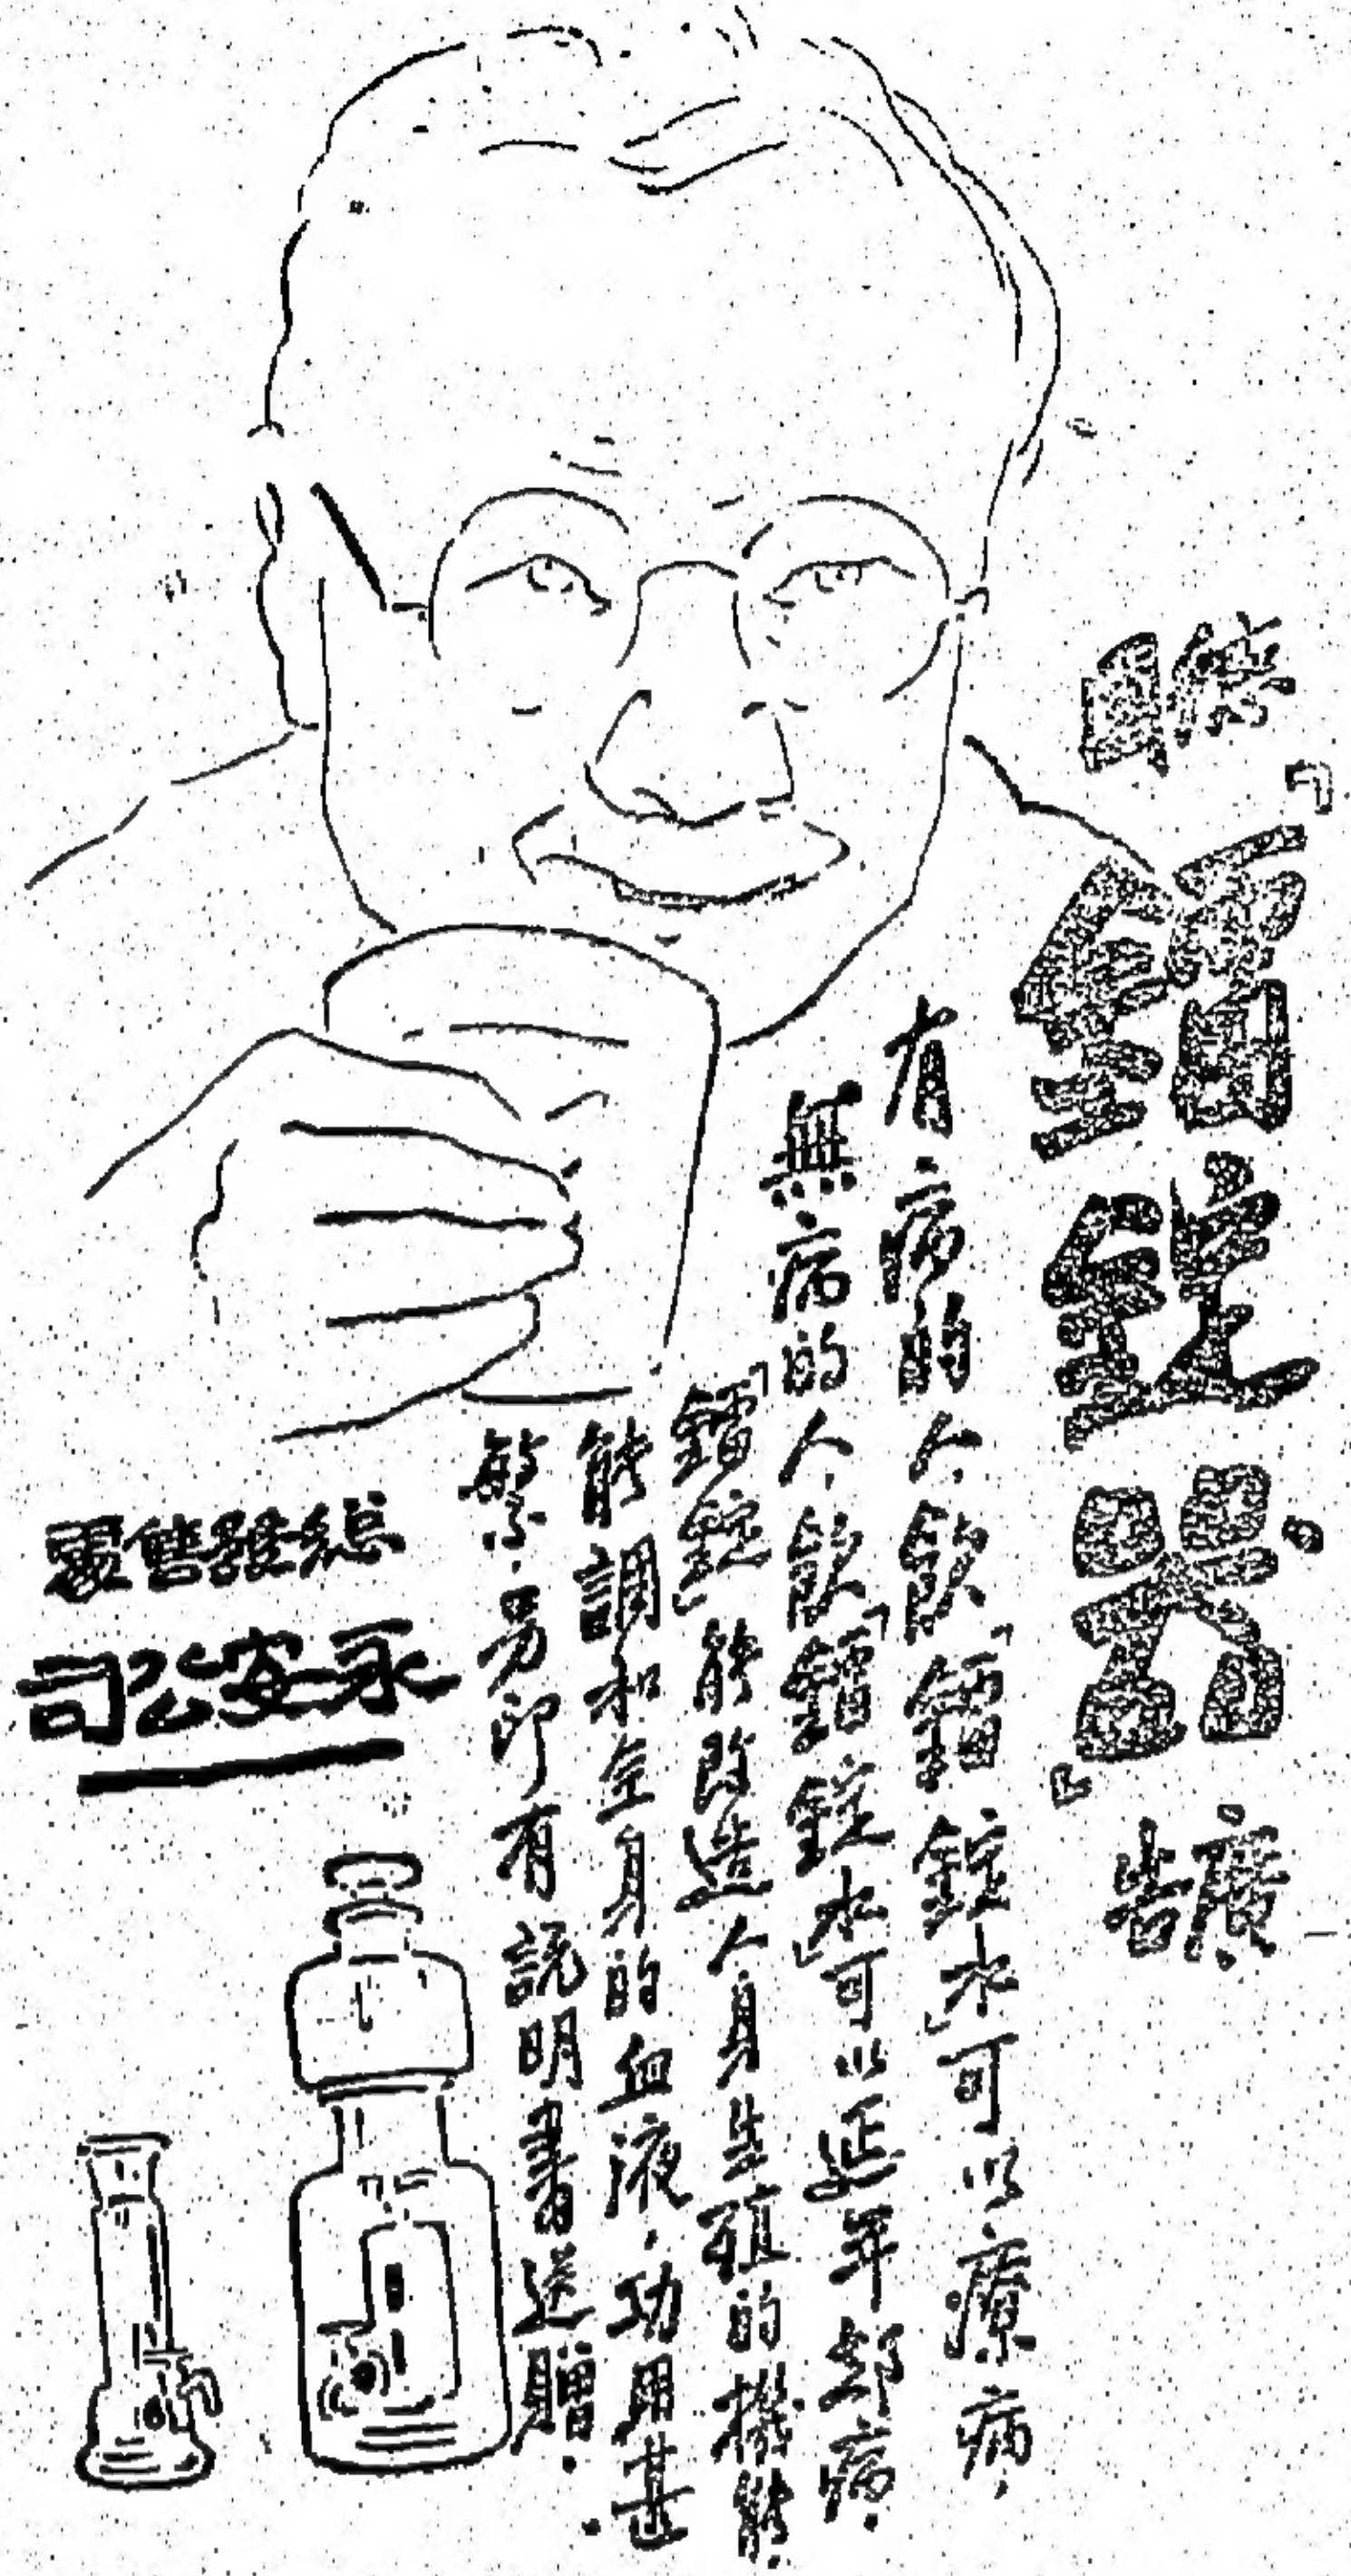 「鐳錠器」
廣告
有病的人、飲「鐳錠水」可以療病、
無病的人、飲「鐳錠水」可以延年却病、
「鐳錠」能改造人身生殖的機能、
能調和全身的血液、功用甚
繁、另印有説明書送贈.
總發售處
永安公司